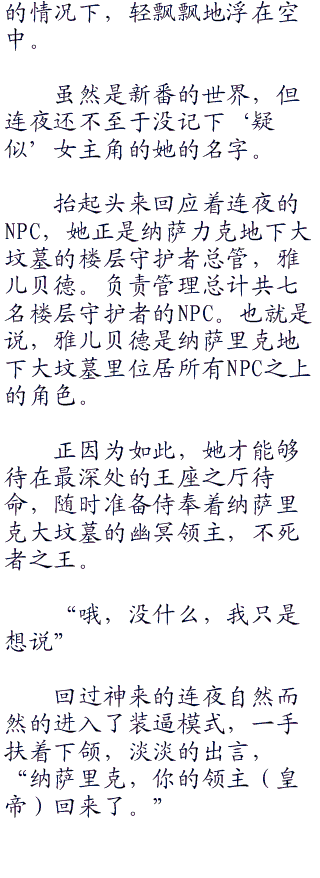 的情况下，轻飘飘地浮在空
中。
虽然是新番的世界，但
连夜还不至于没记下‘疑
似’女主角的她的名字。
抬起头来回应着连夜的
NPC，她正是纳萨力克地下大
坟墓的楼层守护者总管，雅
儿贝德。负责管理总计共七
名楼层守护者的NPC。也就是
说，雅儿贝德是纳萨里克地
下大坟墓里位居所有NPC之上
的角色。
正因为如此，她才能够
待在最深处的王座之厅待
命，随时准备侍奉着纳萨里
克大坟墓的幽冥领主，不死
者之王。
“哦，没什么，我只是
想说”
回过神来的连夜自然而
然的进入了装逼模式，一手
扶着下颌，淡淡的出言，
“纳萨里克，你的领主（皇
帝）回来了。”